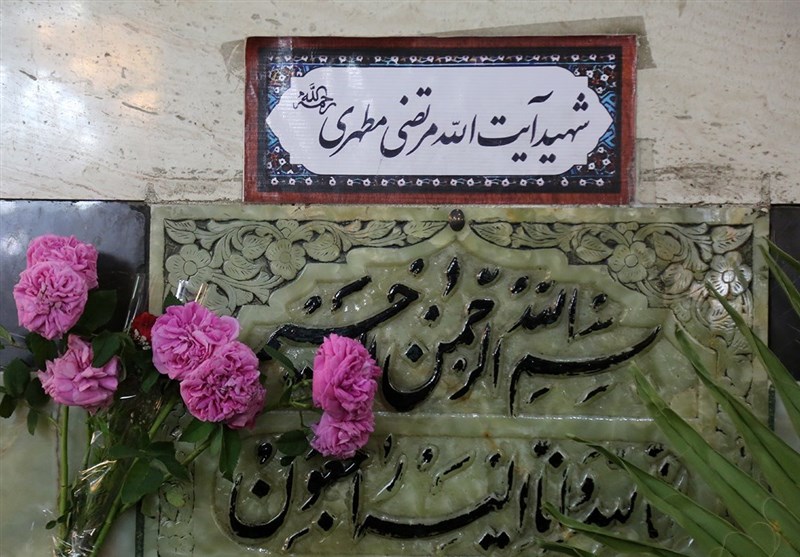 شهید آیت الله مرتضی مطهری
رحمه الله
بسم الله الرحمن الرحیم
انا لله و انا الیه راجعون